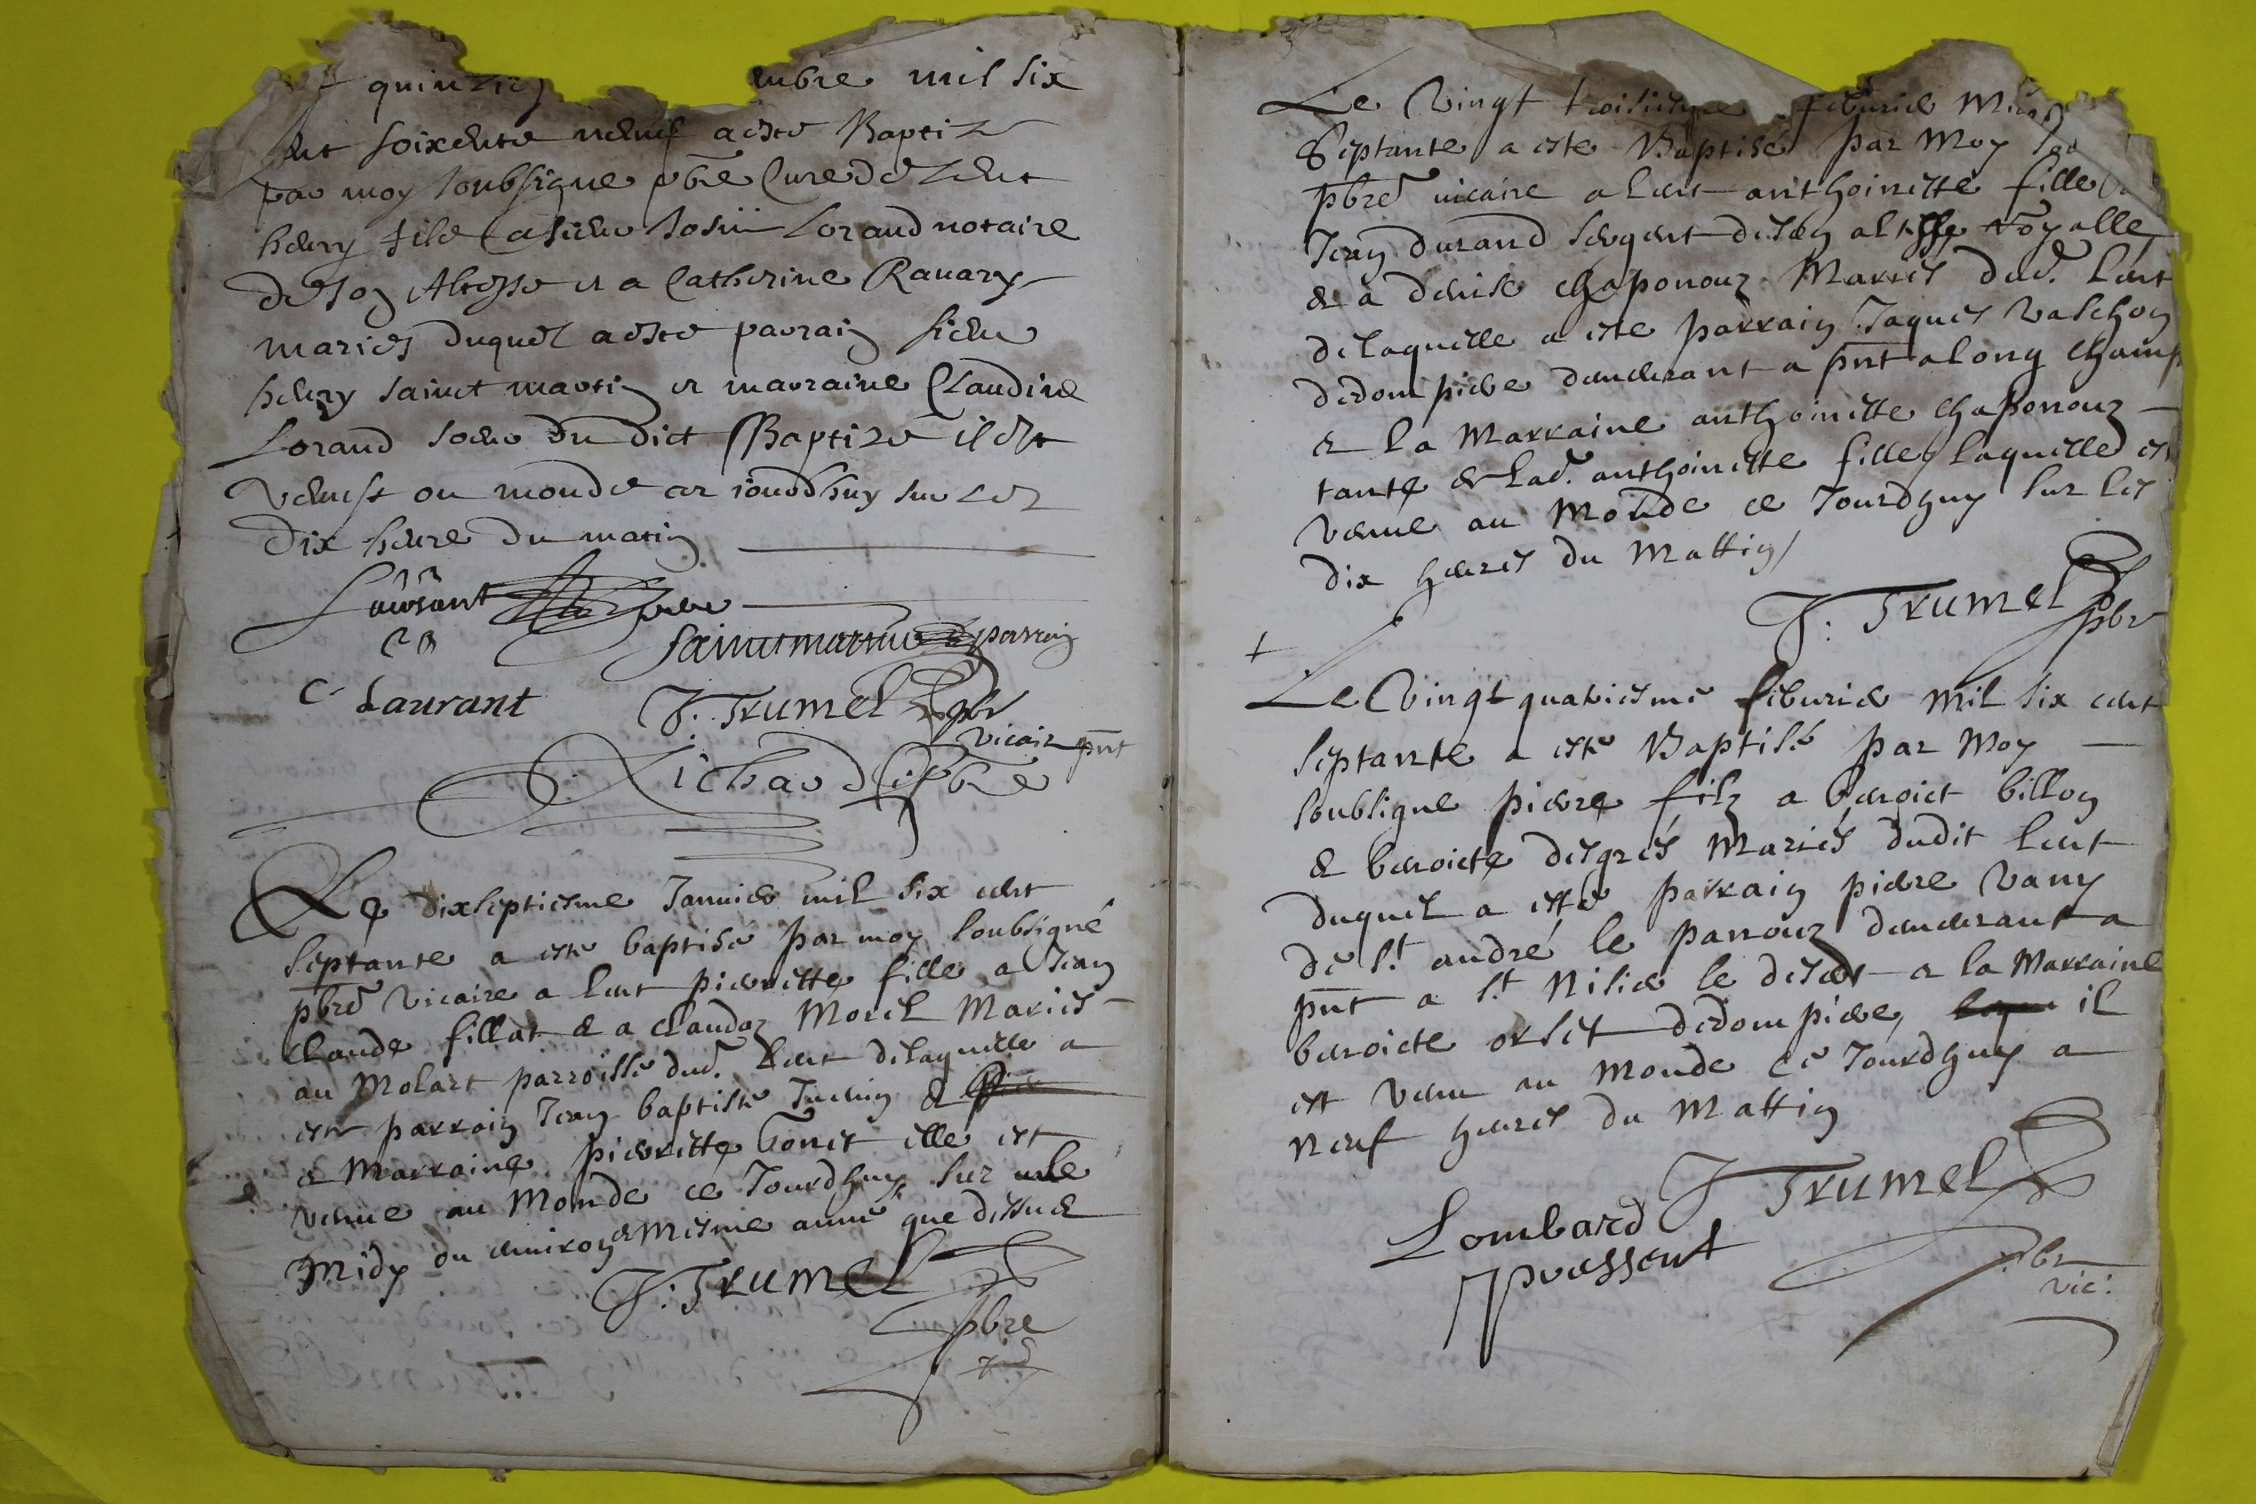 quinzie mbre mil six
ent soixente neuf a este Baptize
par moy soubsigne pbre Cure de Lent
henry filz a sieur Lorand notaire
de son Altesse et a Catherine Ravary
maries duquel a este parrain sieur
henry sainct martin et marraine Claudine
Lorand soeur du dict Baptize il est
venust ou monde ce jourdhuy sur les
dix heure du matin
Laurant pere
sainctmartin parrain
C Laurant J. Trumel pbr
vicair pnt
Richard pbre
Le dixseptiesme Janvier mil six cent
septante a este baptisé par moy soubsigné
pbre vicaire a Lent pierrette fille a Jean
Claude fillat & a claudaz Morel Mariés
au Molart parroisse dud. Lent delaquelle a
este parrain Jean baptiste &
& Marraine pierrette Gonet elle est
venue au Monde ce Jourdhuy sur le
midy ou environ & mesme année que dessus &
J. Trumel
pbre
Le vingt troisiesme febvrier Mil
Septante a este Baptisé par Moy
pbre vicaire a Lent anthoinette fille
Jean durand sergent de son altesse royalle
& a denise chaponouz Mariés dud. Lent
delaquelle a este parrain Jaques vaschon
de dompierre demeurant a pnt a long champ
& la Marraine anthoinette chaponouz
tante & lad. anthoinette fille laquelle est
venue au Monde ce Jourdhuy sur les
dix heures du Mattin
J. Trumel
pbr
Le vingt quatriesme febvrier mil six cent
septante a esté Baptisé par Moy
soubsigne pierre filz a benoict billon
& benoicte desgrés Mariés dudit Lent
duquel a esté parrain pierre vany
de St andré le panouz demeurant a
pnt a St Nisier le desert & la Marraine
benoicte orset de dompierre, il
est venu au Monde ce Jourdhuy a
Neuf heures du Mattin
J Trumel
Lombard
present
pbr
vic: